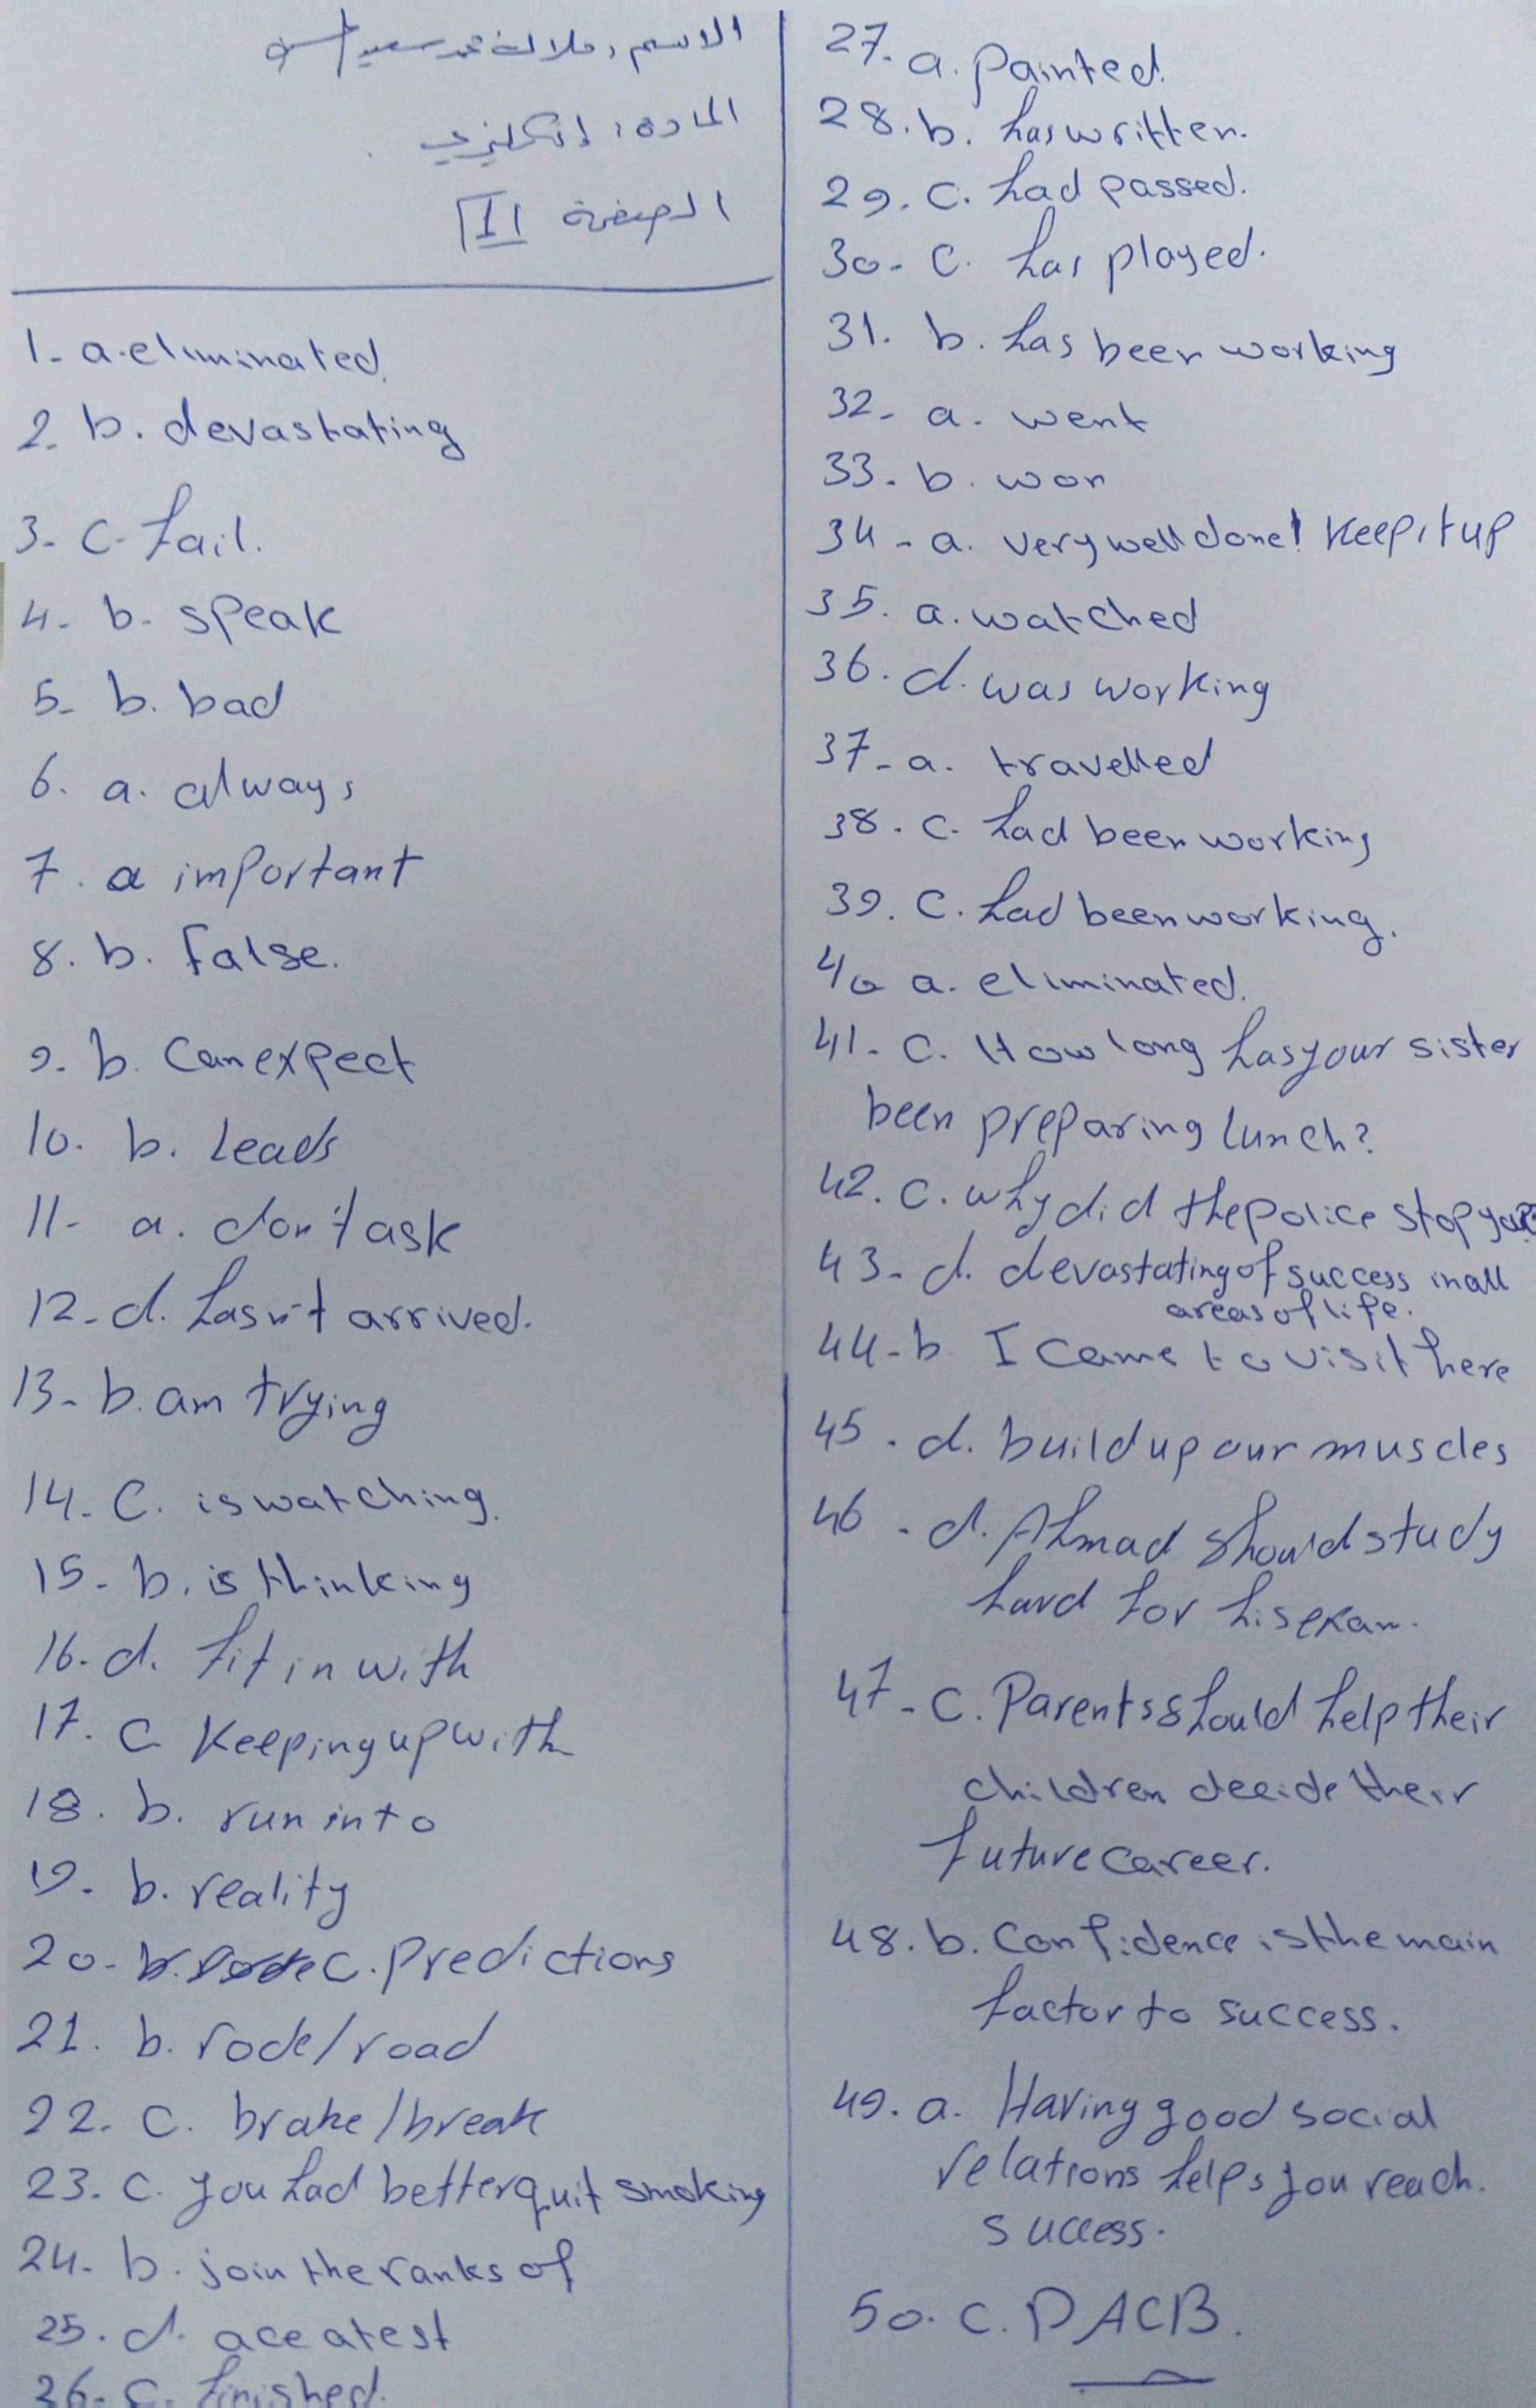 الاسم:
المادة: إنكليزي
الصفحة II
1- a. eliminated.
2. b. devastating
3- c- fail.
4- b- speak
5- b. bad
6. a. always
7. a important
8. b. false.
9- b. can expect
10. b. leads
11- a. don't ask
12- d. hasn't arrived.
13- b. am trying
14- C. is watching.
15- b. is thinking
16- d. fit in with
17. C Keeping up with
18. b. run into
19. b. reality
20- c. predictions
21. b. rode/road
22- C. brake/break
23. C. you had better quit smoking
24- b. join the ranks of
25. d. ace a test
26- C. finished.
27- a. painted.
28. b. has written.
29. C. had passed.
30- C. has played.
31. b. has been working
32- a. went
33. b. won
34- a. very well done! Keep it up
35. a. watched
36. d. was working
37- a. travelled
38. C. had been working
39. C. had been working.
40 a. eliminated.
41- C. How long has your sister
been preparing lunch?
42. C. why did the police stop you?
43- d. devastating of success in all
areas of life.
44- b I came to visit here
45. d. build up our muscles
46. d. Ahmad should study
hard for his exam.
47- C. Parents should help their
children decide their
future career.
48. b. Confidence is the main
factor to success.
49. a. Having good social
relations helps you reach.
success.
50. C. DACB.